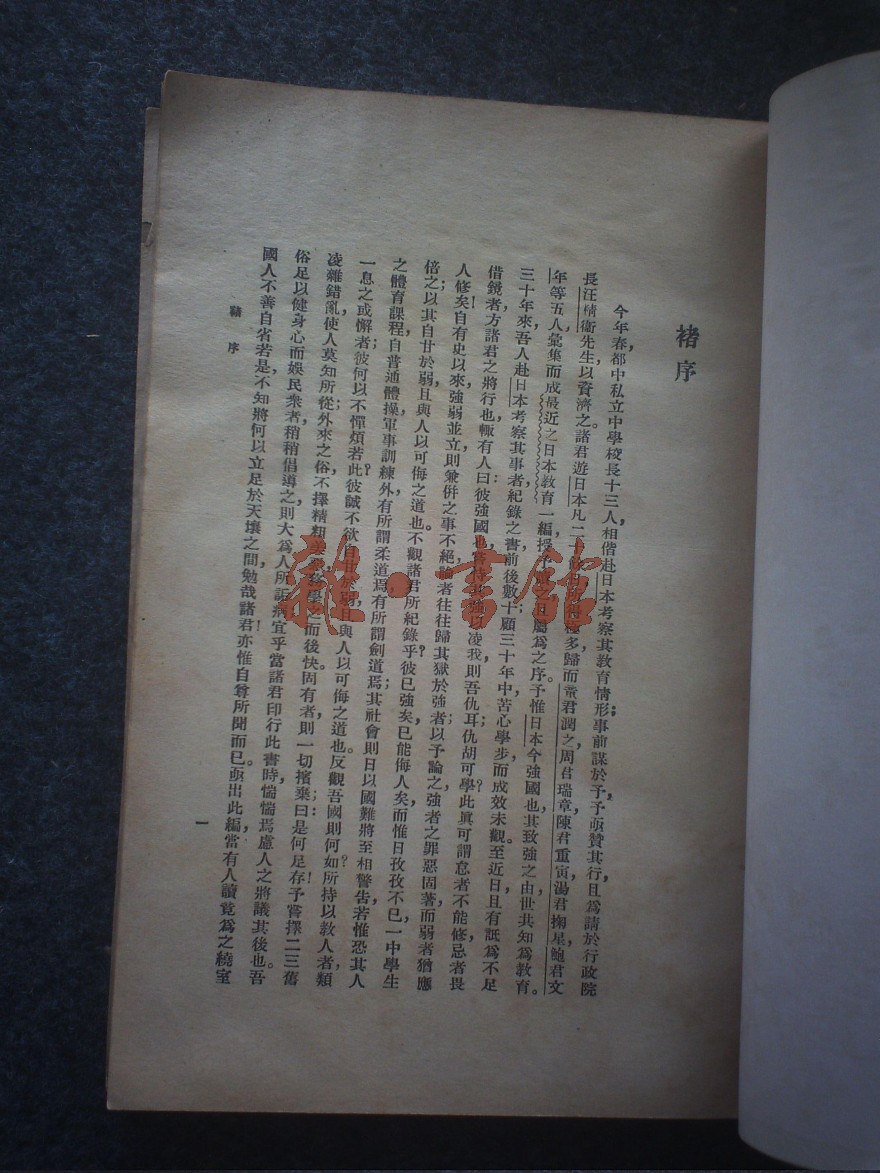 褚序
今年春，都中私立中學校長十三人，相偕赴日本考察其教育情形；事前謀於予，予亟贊其行，且爲請於行政院
長汪精衛先生以資濟之。諸君遊日本凡二十多歸而黃君潤之，周君瑞章，陳君重寅，湯君掬星，鮑君文
年等五人彙集而成最近之日本教育一編授予屬爲之序。予惟日本今強國也，其致強之由，世共知爲教育。
三十年來，吾人赴日本考察其事者，紀錄之書，前後數十；顧三十年中苦心學步，而成效未觀。至近日且有詆爲不足
借鏡者，方諸君之將行也，輒有人曰：彼強國也，嘗持其強以凌我，則吾仇耳；仇胡可學？此眞可謂怠者不能修，忌者畏
人修矣。自有史以來，強弱並立，則兼併之事不絕，者往往歸其獄於強者；以予論之，強者之罪惡固著，而弱者猶應
倍之；以其自甘於弱，且與人以可侮之道也。不觀諸君所紀錄乎？彼已強矣，已能侮人矣，而惟日孜孜不已；一中學生
之體育課程，自普通體操軍事訓練外，有所謂柔道焉，有所謂劍道焉；其社會則日以國難將至相警告，若惟恐其人
一息之或懈者；彼何以不憚煩若此？彼誠不欲自甘於弱，且與人以可侮之道也。反觀吾國則何如？所持以教人者，類
凌雜錯亂，使人莫知所從；外來之俗，不擇精粗美惡，務學之而後快；固有者則一切擯棄，曰：是何足存！予嘗擇二三舊
俗，足以健身心而娛民衆者，稍稍倡導之，則大爲人所詬病；宜乎當諸君印行此書時，惴惴焉慮人之將議其後也。吾
國人不善自省若是，不知將何以立足於天壤之間！勉哉諸君！亦惟自尊所聞而已。亟出此編，當有人讀竟爲之繞室
褚序
一
雜·書館